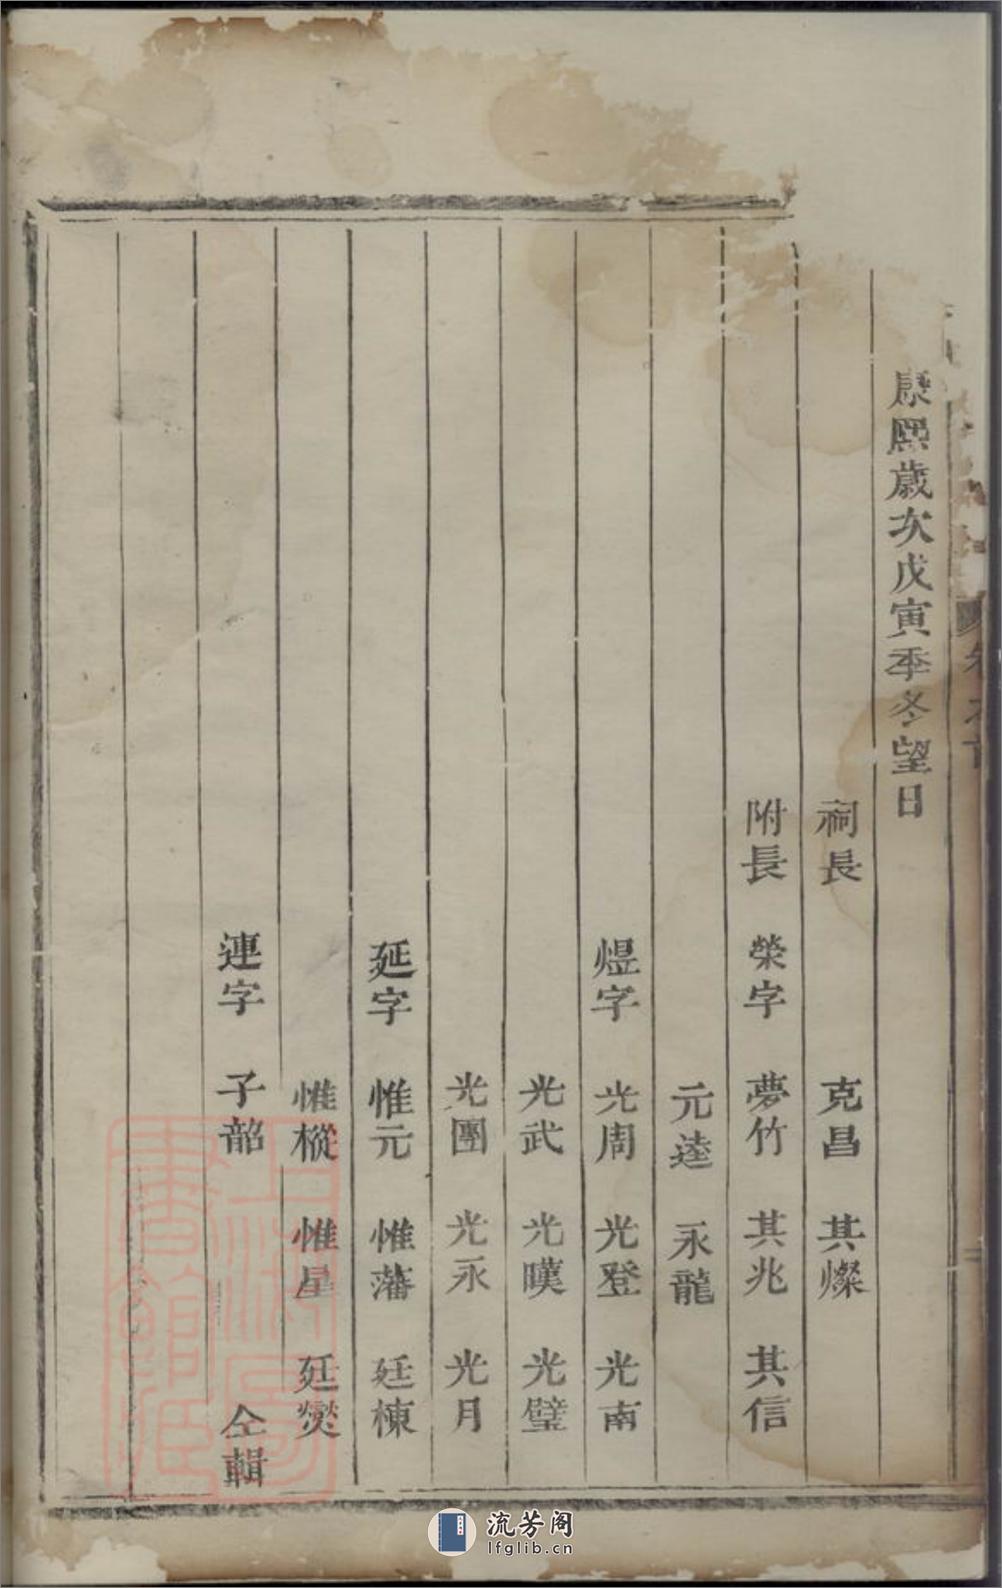 康熙歲次戊寅季冬望日
祠長 克昌 其燦
附長 榮字 夢竹 其兆 其信
元逵 永龍
煜字 光周 光登 光南
光武 光暵 光璧
光團 光永 光月
延字 惟元 惟藩 廷棟
惟樅 惟星 廷爕
連字 子韶 仝輯
卷之首
上海圖書館藏
流芳阁
lfglib.cn